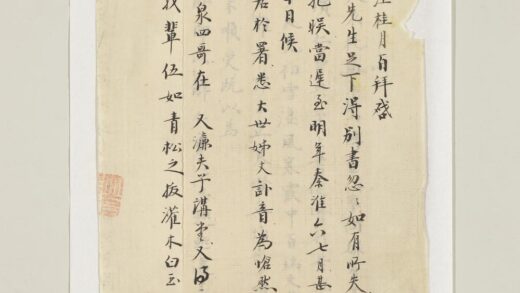 桂月百拜啓
先生足下得別書忽〻如有所失
犯娛當遲至明年秦淮六七月甚
日候
君於署悉大世姊丈訃音為愴然
泉四哥在 又濂夫子講堂又得
我輩伍如青松之拔灌木白玉